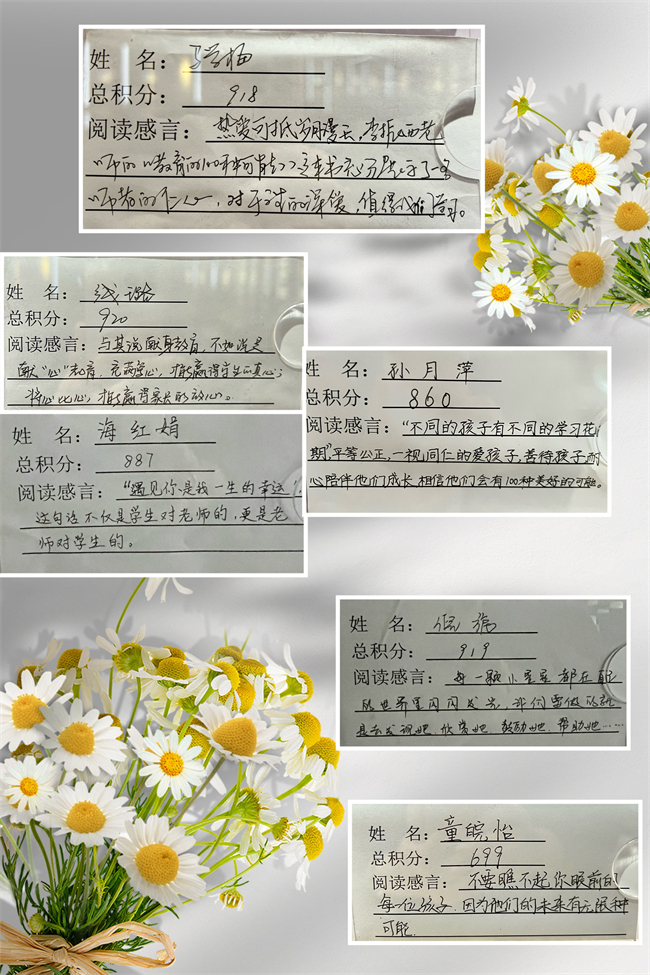 姓 名：丁学梅
总积分：918
阅读感言：热爱可抵岁月漫长，李振西老
师的《教育的100种可能》这本书充分展示了一名
师者的仁心，对于读的深馊，值得我们学习。
姓 名：钱璐
总积分：920
阅读感言：与其说献身教育，不如说是
献“心”教育，充满爱心，推赢得学生的真心；
将心比心，推赢得家长的放心。
姓 名：孙月萍
总积分：860
阅读感言：“不同的孩子有不同的学习花
期”，平等公正，一视同仁的爱孩子，善待孩子，耐
心陪伴他们成长，相信他们会有100种美好的可能。
姓 名：海红娟
总积分：887
阅读感言：“遇见你是我一生的幸运！”
这句话不仅是学生对老师的，更是老
师对学生的。
姓 名：倪旎
总积分：919
阅读感言：每一颗小星星都在自
己的世界里闪闪发光，我们需做的就
是去发现她，欣赏她，鼓励她，帮助她……
姓 名：童皖怡
总积分：699
阅读感言：不要瞧不起你眼前的
每一位孩子，因为他们的未来有无限种
可能